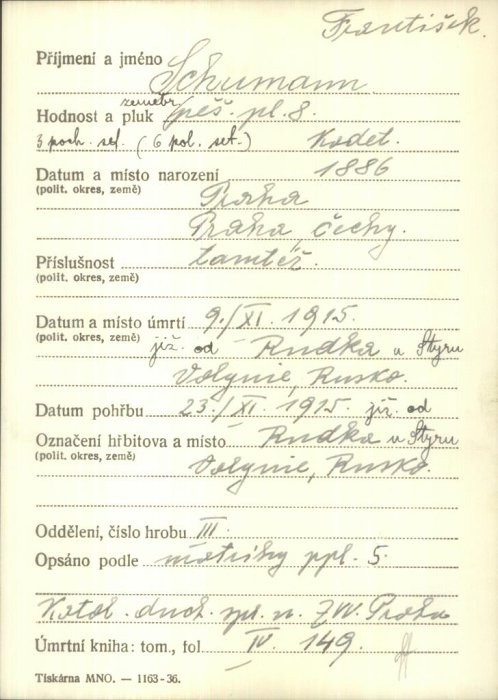 František.
Příjmení a jméno Schumann
zeměbr.
Hodnost a pluk pěš. pl. 8.
3 poch. set. (6 pol. set.) Kadet.
Datum a místo narození 1886
(polit. okres, země) Praha
Praha, Čechy.
Příslušnost tamtéž.
(polit. okres, země)
Datum a místo úmrtí 9./XI. 1915.
(polit. okres, země) již. od Rudka u Styru
Volynie, Rusko.
Datum pohřbu 23./XI. 1915. již. od
Označení hřbitova a místo Rudka u Styru
(polit. okres, země) Volynie, Rusko.
Oddělení, číslo hrobu III.
Opsáno podle matriky ppl. 5.
Katol. duch. spr. n. ZVV. Praha
Úmrtní kniha: tom., fol IV. 149.
Tiskárna MNO. — 1163-36.